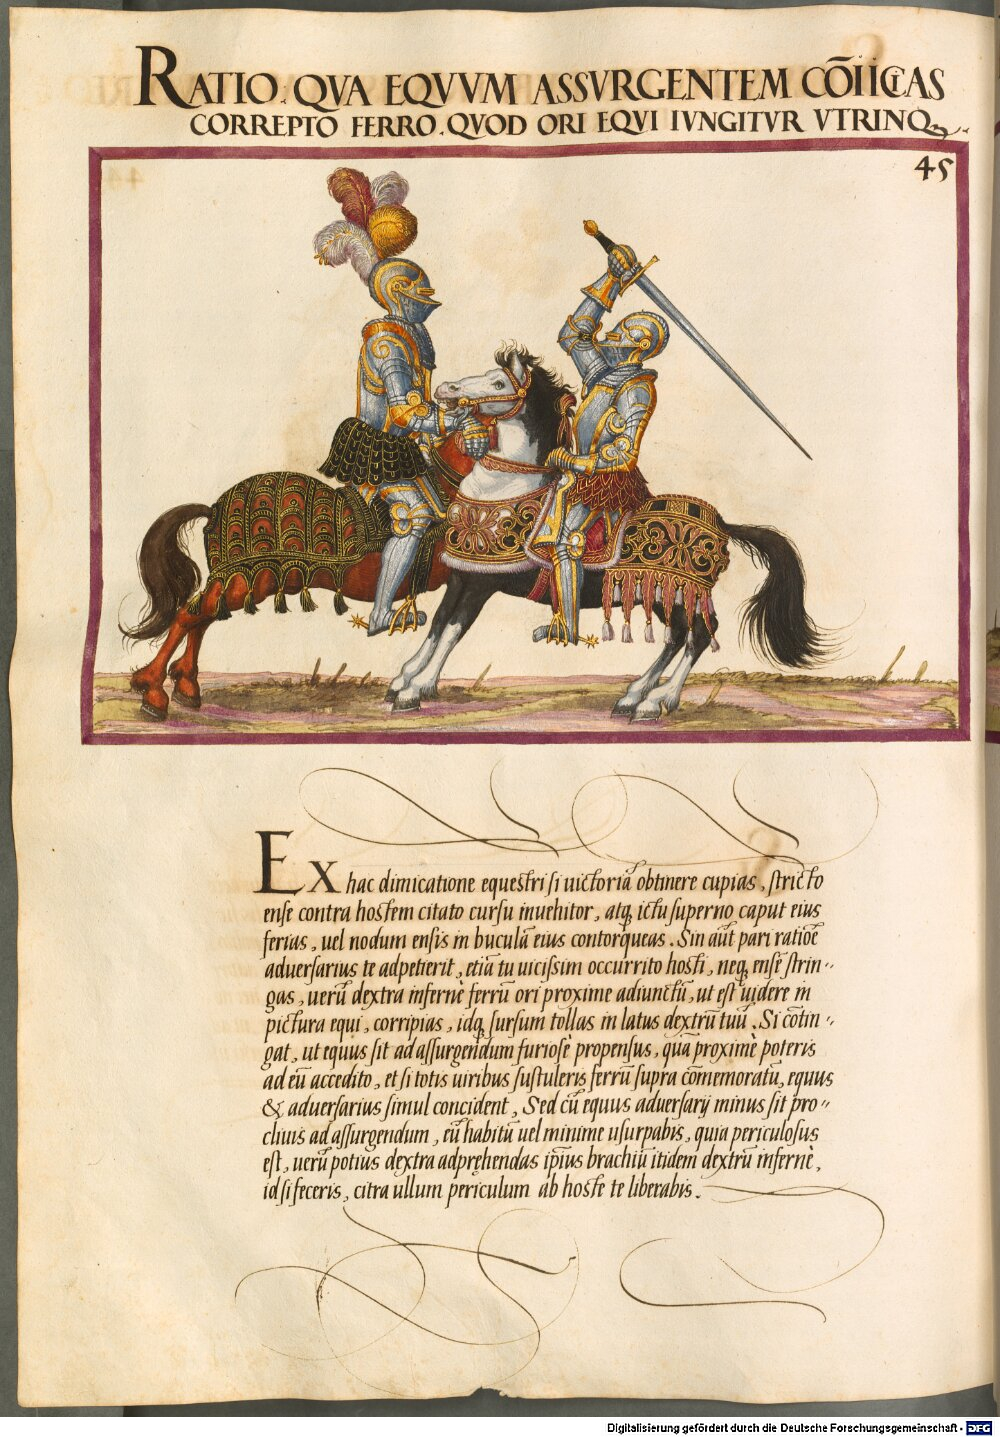 RATIO. QVA EQVVM ASSVRGENTEM CÕIICIAS
CORREPTO FERRO. QVOD ORI EQVI IVNGITVR VTRINQȝ.
45
EX hac dimicatione equestri si uictoriã obtinere cupias, stricto
ense contra hostem citato cursu inuehitor, atqȝ ictu superno caput eius
ferias, uel nodum ensis in buculã eius contorqueas. Sin aũt pari ratiõe
aduersarius te adpetierit, etiã tu uicissim occurrito hosti, neqȝ ensẽ strin-
gas, uerũ dextra infernè ferrũ ori proxime adiunctũ, ut est uidere in
pictura equi, corripias, idqȝ sursum tollas in latus dextrũ tuũ. Si cõtin-
gat, ut equus sit ad assurgendum furiosè propensus, quã proximè poteris
ad eũ accedito, et si totis uiribus sustuleris ferrũ supra cõmemoratũ, equus
& aduersarius simul concident, Sed cũ equus aduersarij minus sit pro-
cliuis ad assurgendum, eũ habitũ uel minime usurpabis, quia periculosus
est, uerũ potius dextra adpręhendas ipsius brachiũ itidem dextrũ infernè,
id si feceris, citra ullum periculum ab hoste te liberabis.
Digitalisierung gefördert durch die Deutsche Forschungsgemeinschaft - DFG